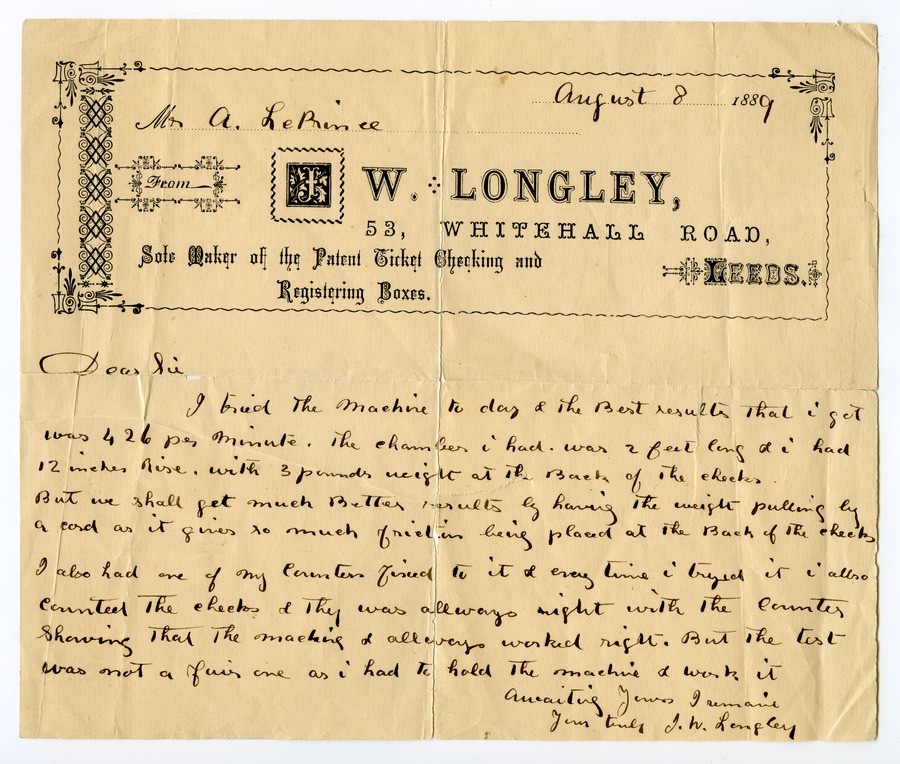 August 8 1889
Mr A. LePrince
From
J W. LONGLEY,
53, WHITEHALL ROAD,
Sole Maker of the Patent Ticket Checking and
LEEDS.
Registering Boxes.
Dear Sir
I tried the Machine to day & the Best results that i got
was 426 per Minute. The chamber i had. was 2 feet long & i had
12 inches Rise. with 3 pounds weight at the Back of the checks.
But we shall get much Better results by having the weight pulling by
a cord as it gives so much friction being placed at the Back of the checks
I also had one of my Counters fixed to it & every time i tryed it i allso
Counted the checks & they was allways right with the Counter
Showing that the machine & allways worked right. But the test
was not a fair one as i had to hold the machine & work it
Awaiting Yours I remain
Yours truly J. W. Longley